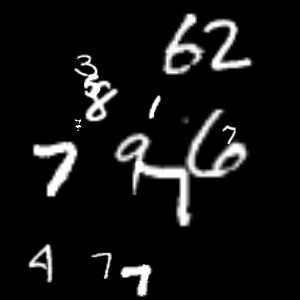 62
3
8
1
7
7 9 7 6
7
4 7 7